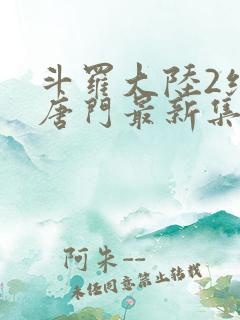 斗羅大陸2
唐門最新集
阿朱--
未经同意禁止转载